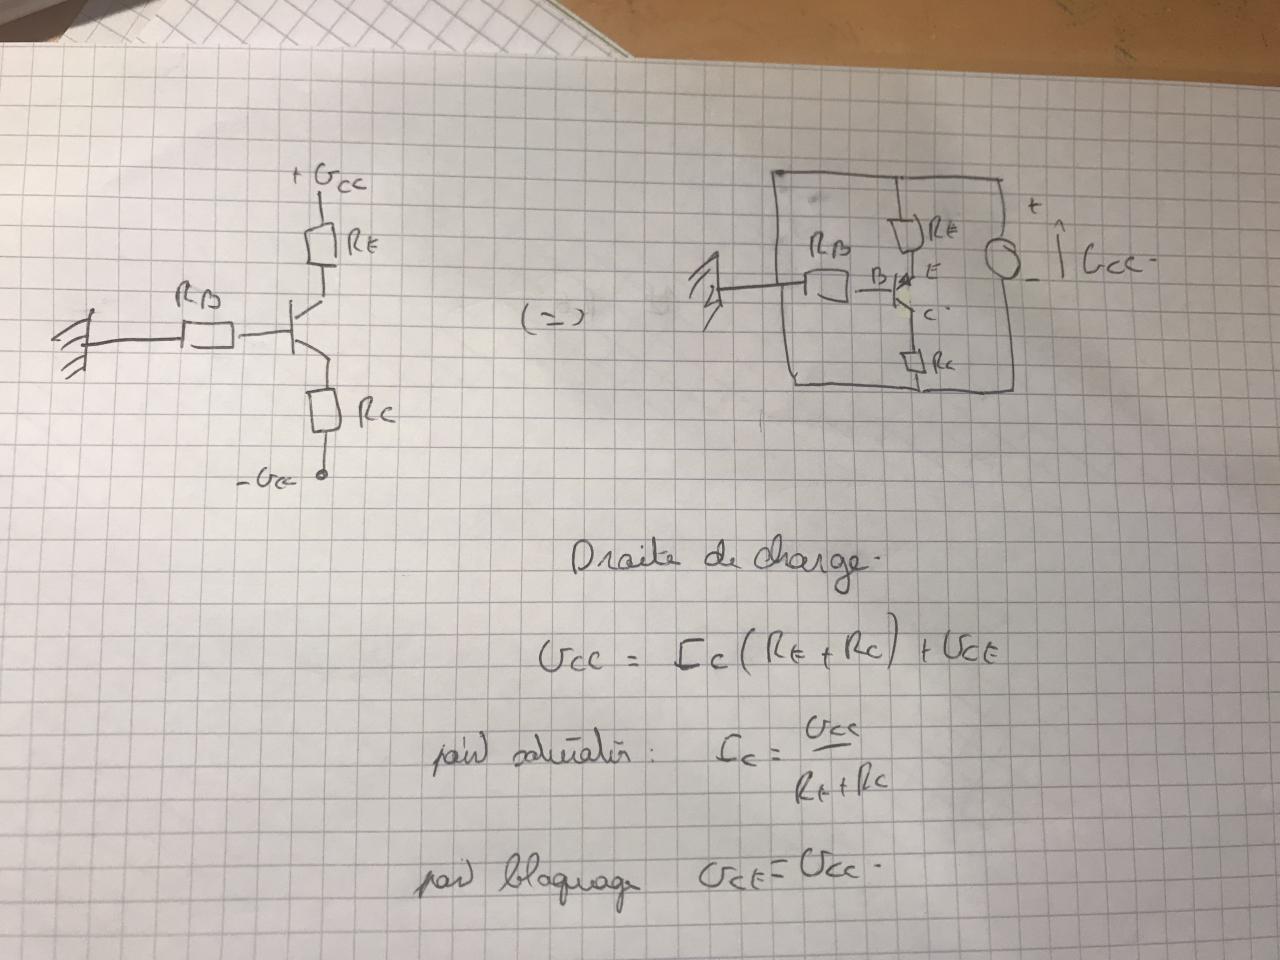 + Ucc
RE
RB
RC
- Ucc
(=)
+
RE
RB
B
E
- Ucc.
C.
Rc
Droite de charge.
Ucc = Ic (RE + RC) + UCE
point saturation : Ic = Ucc / RE + RC
point blocage UCE = Ucc.